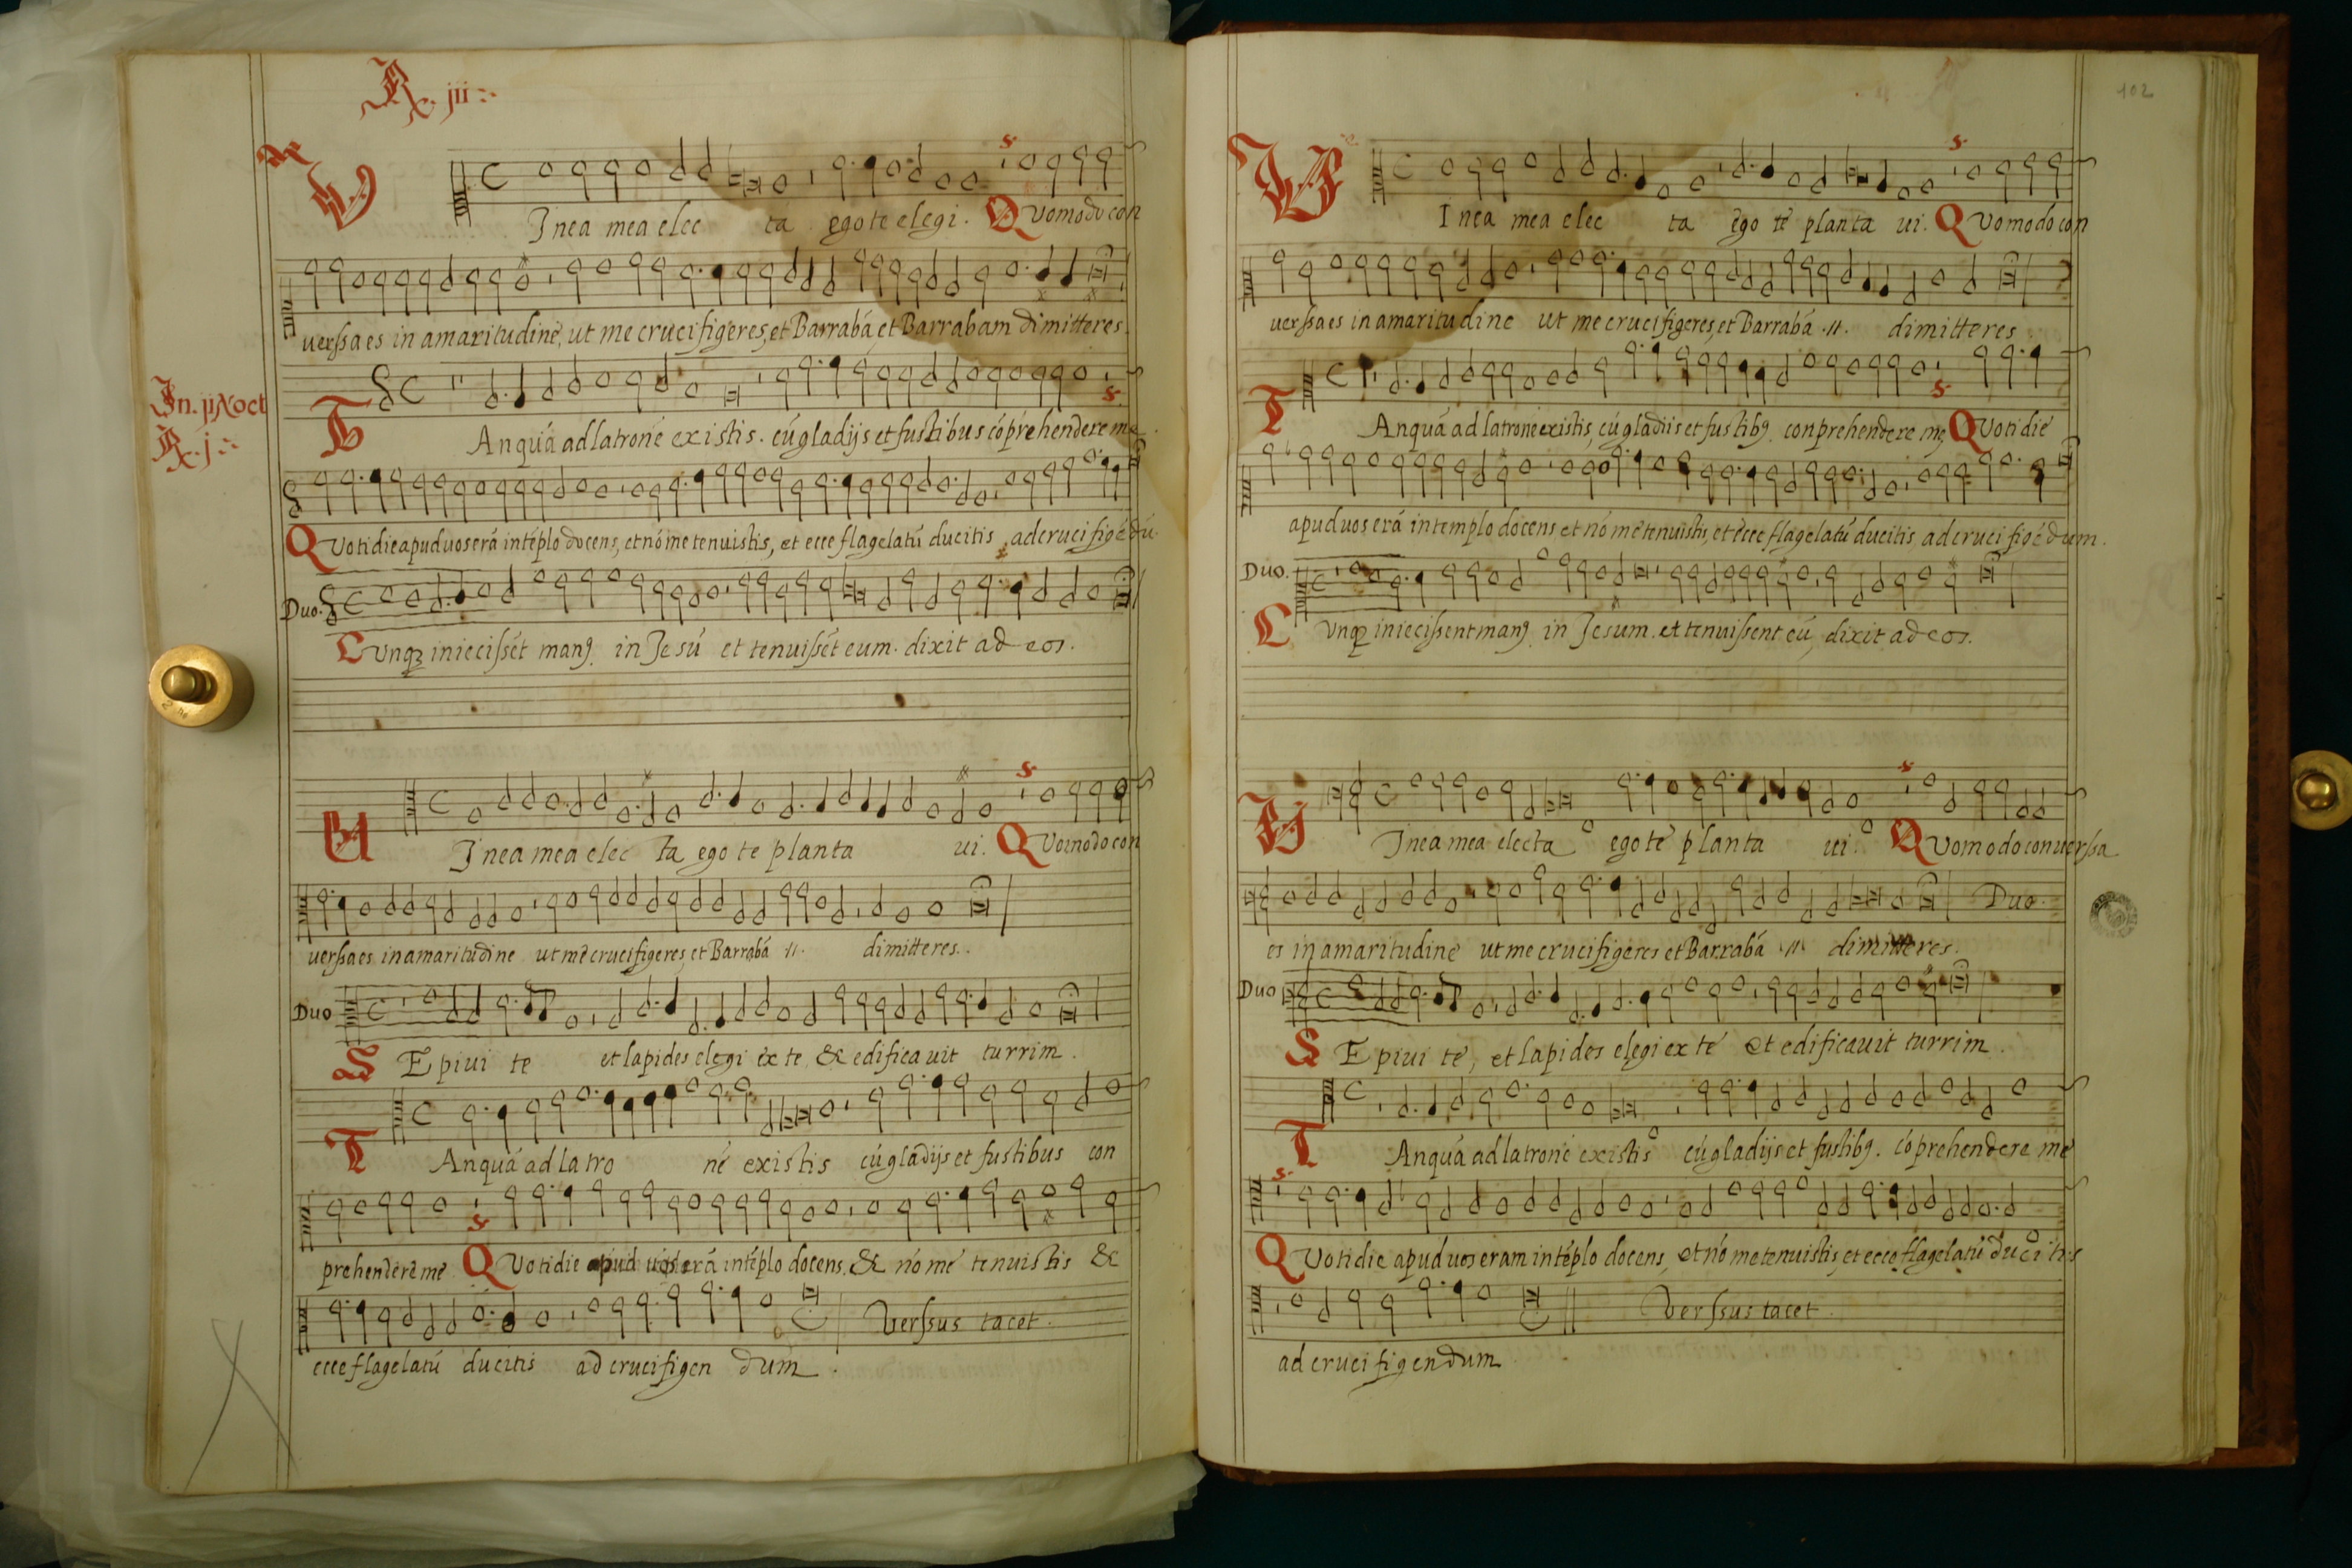 R. jii
s.
V Inea mea elec ta ego te elegi. Quomodo con
uerssa es in amaritudiné, ut me crucifigeres, et Barrabá, et Barrabam dimitteres.
In. ij Noct
R. j
s.
T Anquá ad latroné existis. cú gladijs et fustibus cóprehendere me.
Quotidie apud uos erá intéplo docens, et nó me tenuistis, et ecce flagelatú ducitis ad crucifigédú.
Duo.
Cunqȝ inieciſsét manꝯ in Jesú et tenuiſsét eum. dixit ad eos.
s.
U Inea mea elec ta ego te planta ui. Quomodo con
uerssa es in amaritudine ut me crucifigeres, et Barrabá .11. dimitteres.
Duo
S Epiui te et lapides elegi ex te & edificauit turrim.
T Anquá ad latro né existis cú gladijs et fustibus con
s.
prehendere me Quotidie apud uos erá intéplo docens, & nó me tenuistis &
ecce flagelatú ducitis ad crucifigen dum.
Verssus tacet.
102
s.
V Inea mea elec ta ego te planta ui. Quomodo con
uerssa es in amaritudine ut me crucifigeres, et Barrabá .11. dimitteres
s.
T Anquá ad latroné existis, cú gladiis et fustibꝯ. conprehendere me Quotidie
apud uos erá in templo docens, et nó me tenuistis, et ecce flagelatú ducitis, ad crucifigédum.
Duo.
Cunqȝ inieciſsent manꝯ in Jesum. et tenuiſsent eú, dixit ad eos.
s.
V Inea mea electa ego te planta ui. Quomodo conuerssa
Duo.
es in amaritudine ut me crucifigeres et Barrabá .11. dimitteres.
Duo
S Epiui te, et lapides elegi ex te et edificauit turrim.
T Anquá ad latroné existis cú gladijs et fustibꝯ. cóprehendere me
s.
Quotidie apud uos eram intéplo docens, et nó me tenuistis, et ecce flagelatú ducitis
Verssus tacet.
ad crucifigendum